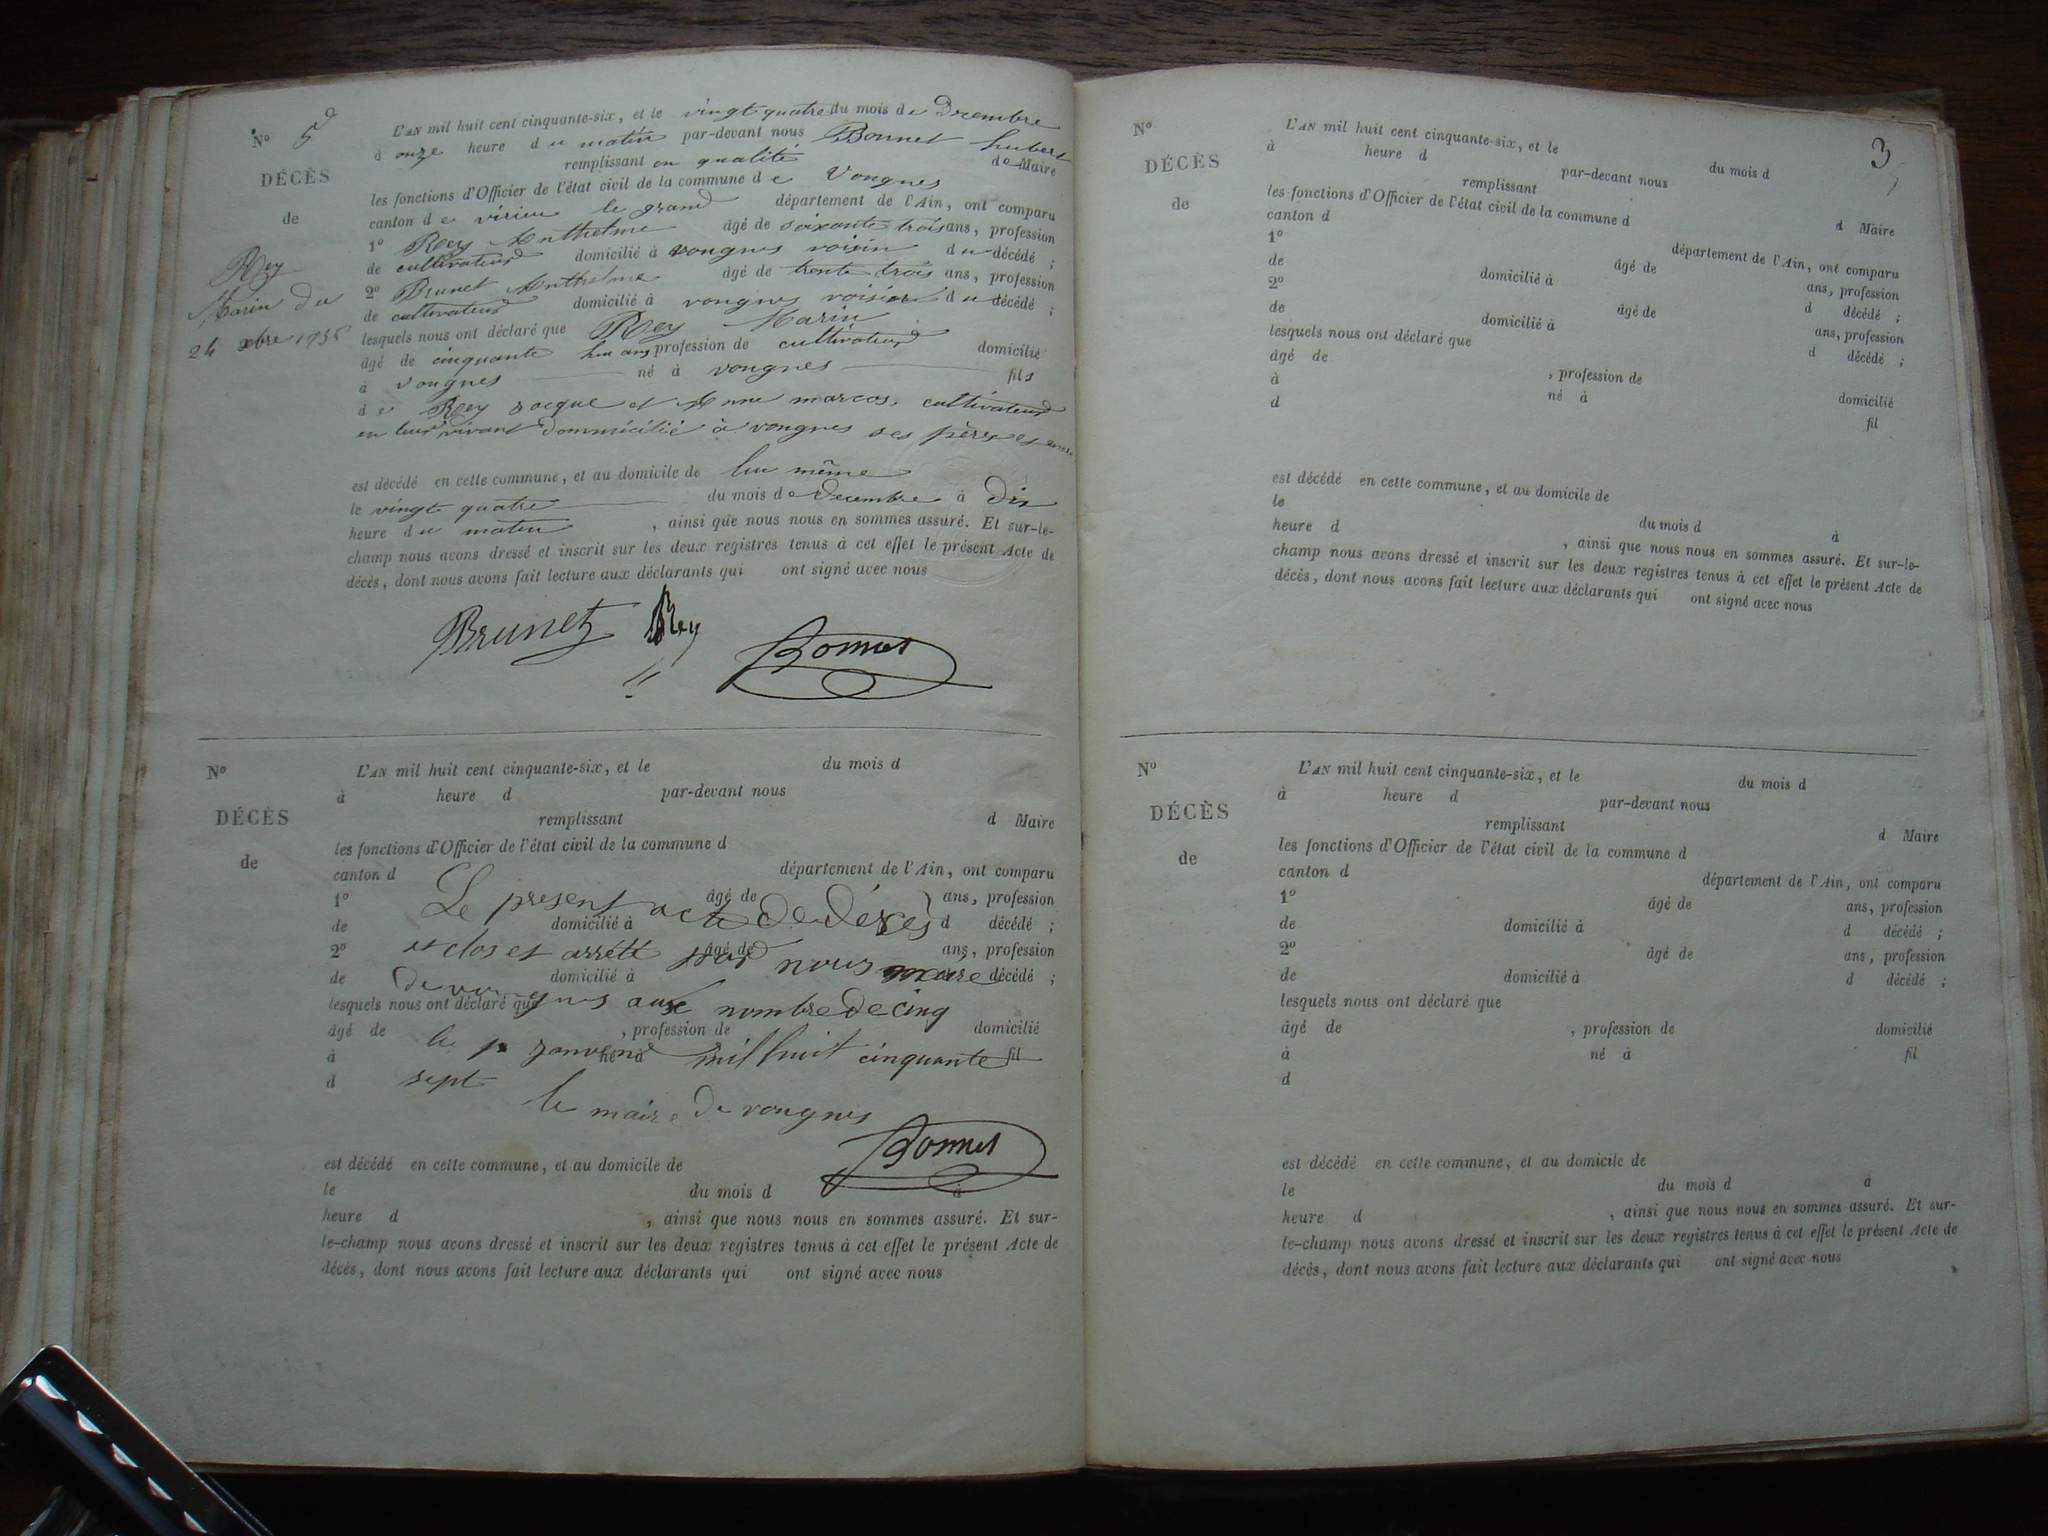 N° 5
DÉCÈS
de
Rey
Marin du
24 xbre 1856
L'AN mil huit cent cinquante-six, et le vingt quatre du mois de Decembre
à onze heure du matin par-devant nous Bonnet hubert
remplissant en qualité de Maire
les fonctions d'Officier de l'état civil de la commune de Vongnes
canton de virieu le grand département de l'Ain, ont comparu
1° Rey Anthelme âgé de soixante trois ans, profession
de cultivateur domicilié à vongnes voisin du décédé ;
2° Brunet Anthelme âgé de trente trois ans, profession
de cultivateur domicilié à vongnes voisin du décédé ;
lesquels nous ont déclaré que Rey Marin
âgé de cinquante ans profession de cultivateur domicilié
à vongnes né à vongnes fils
de Rey et Anne cultivateur
en leur vivant à vongnes ses père et mère
est décédé en cette commune, et au domicile de lui même
le vingt quatre du mois de decembre à dix
heure du matin , ainsi que nous nous en sommes assuré. Et sur-le-
champ nous avons dressé et inscrit sur les deux registres tenus à cet effet le présent Acte de
décès, dont nous avons fait lecture aux déclarants qui ont signé avec nous
Brunet Rey
Bonnet
N°
DÉCÈS
de
L'AN mil huit cent cinquante-six, et le du mois d
à heure d par-devant nous
remplissant d Maire
les fonctions d'Officier de l'état civil de la commune d
canton d département de l'Ain, ont comparu
1° âgé de ans, profession
Le present acte de décès
de domicilié à d décédé ;
2° âgé de ans, profession
est clos et arrété par nous maire
de domicilié à décédé ;
de vongnes au nombre de cinq
lesquels nous ont déclaré que
âgé de , profession de domicilié
le janvier mil huit cinquante
à né à fil
d sept
le maire de vongnes
Bonnet
est décédé en cette commune, et au domicile de
le du mois d à
heure d , ainsi que nous nous en sommes assuré. Et sur-
le-champ nous avons dressé et inscrit sur les deux registres tenus à cet effet le présent Acte de
décès, dont nous avons fait lecture aux déclarants qui ont signé avec nous
3
N°
DÉCÈS
de
L'AN mil huit cent cinquante-six, et le du mois d
à heure d par-devant nous
remplissant d Maire
les fonctions d'Officier de l'état civil de la commune d
canton d département de l'Ain, ont comparu
1° âgé de ans, profession
de domicilié à d décédé ;
2° âgé de ans, profession
de domicilié à d décédé ;
lesquels nous ont déclaré que
âgé de , profession de domicilié
à né à fil
d
est décédé en cette commune, et au domicile de
le du mois d à
heure d , ainsi que nous nous en sommes assuré. Et sur-le-
champ nous avons dressé et inscrit sur les deux registres tenus à cet effet le présent Acte de
décès, dont nous avons fait lecture aux déclarants qui ont signé avec nous
N°
DÉCÈS
de
L'AN mil huit cent cinquante-six, et le du mois d
à heure d par-devant nous
remplissant d Maire
les fonctions d'Officier de l'état civil de la commune d
canton d département de l'Ain, ont comparu
1° âgé de ans, profession
de domicilié à d décédé ;
2° âgé de ans, profession
de domicilié à d décédé ;
lesquels nous ont déclaré que
âgé de , profession de domicilié
à né à fil
d
est décédé en cette commune, et au domicile de
le du mois d à
heure d , ainsi que nous nous en sommes assuré. Et sur-
le-champ nous avons dressé et inscrit sur les deux registres tenus à cet effet le présent Acte de
décès, dont nous avons fait lecture aux déclarants qui ont signé avec nous